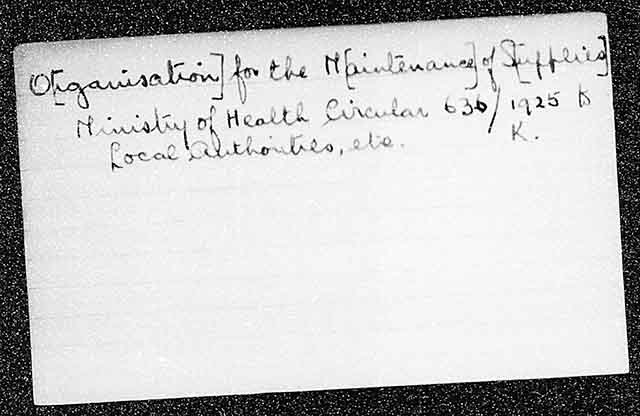 O[rganisation] for the M[aintenance] of S[upplies]
Ministry of Health Circular 636/1925 &
Local Authorities, etc. K.